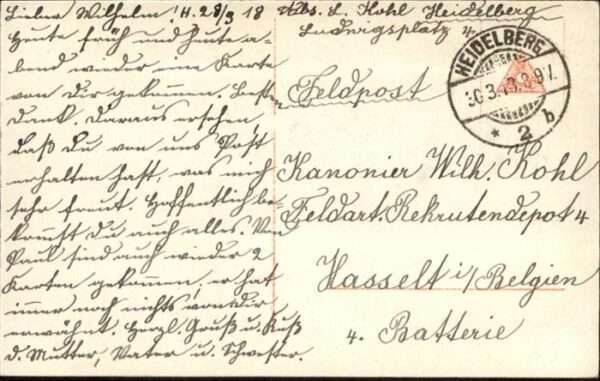 Lieber Wilhelm! H. 28/3 18
Heute früh und heute a-
bend wieder eine Karte
von dir gekommen. Besten
Dank. Daraus ersehen,
daß du von uns Post
erhalten hast, was mich
sehr freut. Hoffentlich be-
kommst du auch alles. Von
Paul sind auch wieder 2
Karten gekommen, er hat
immer noch nichts von dir
erwähnt. Herzl. Gruß u. Kuß
d. Mutter, Vater u. Schwester.
Abs. L. Kohl Heidelberg
Ludwigsplatz 4.
HEIDELBERG
30.3.18.8-9V.
* 2 b
Feldpost
Kanonier Wilh. Kohl
Feldart. Rekrutendepot 4
Hasselt i/Belgien
4. Batterie